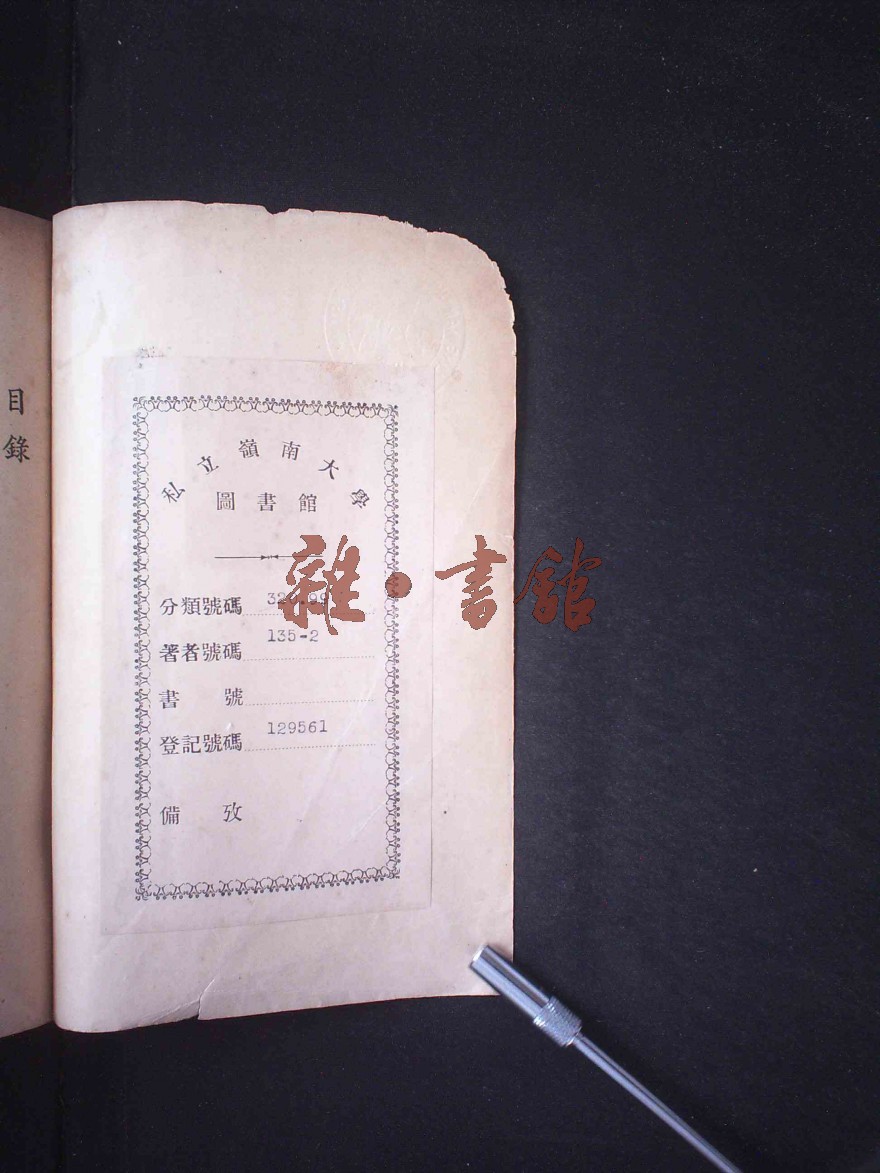 私立嶺南大學
圖書館
分類號碼 320.99
著者號碼 135-2
書 號
登記號碼 129561
備 攷
目錄
雜·書館